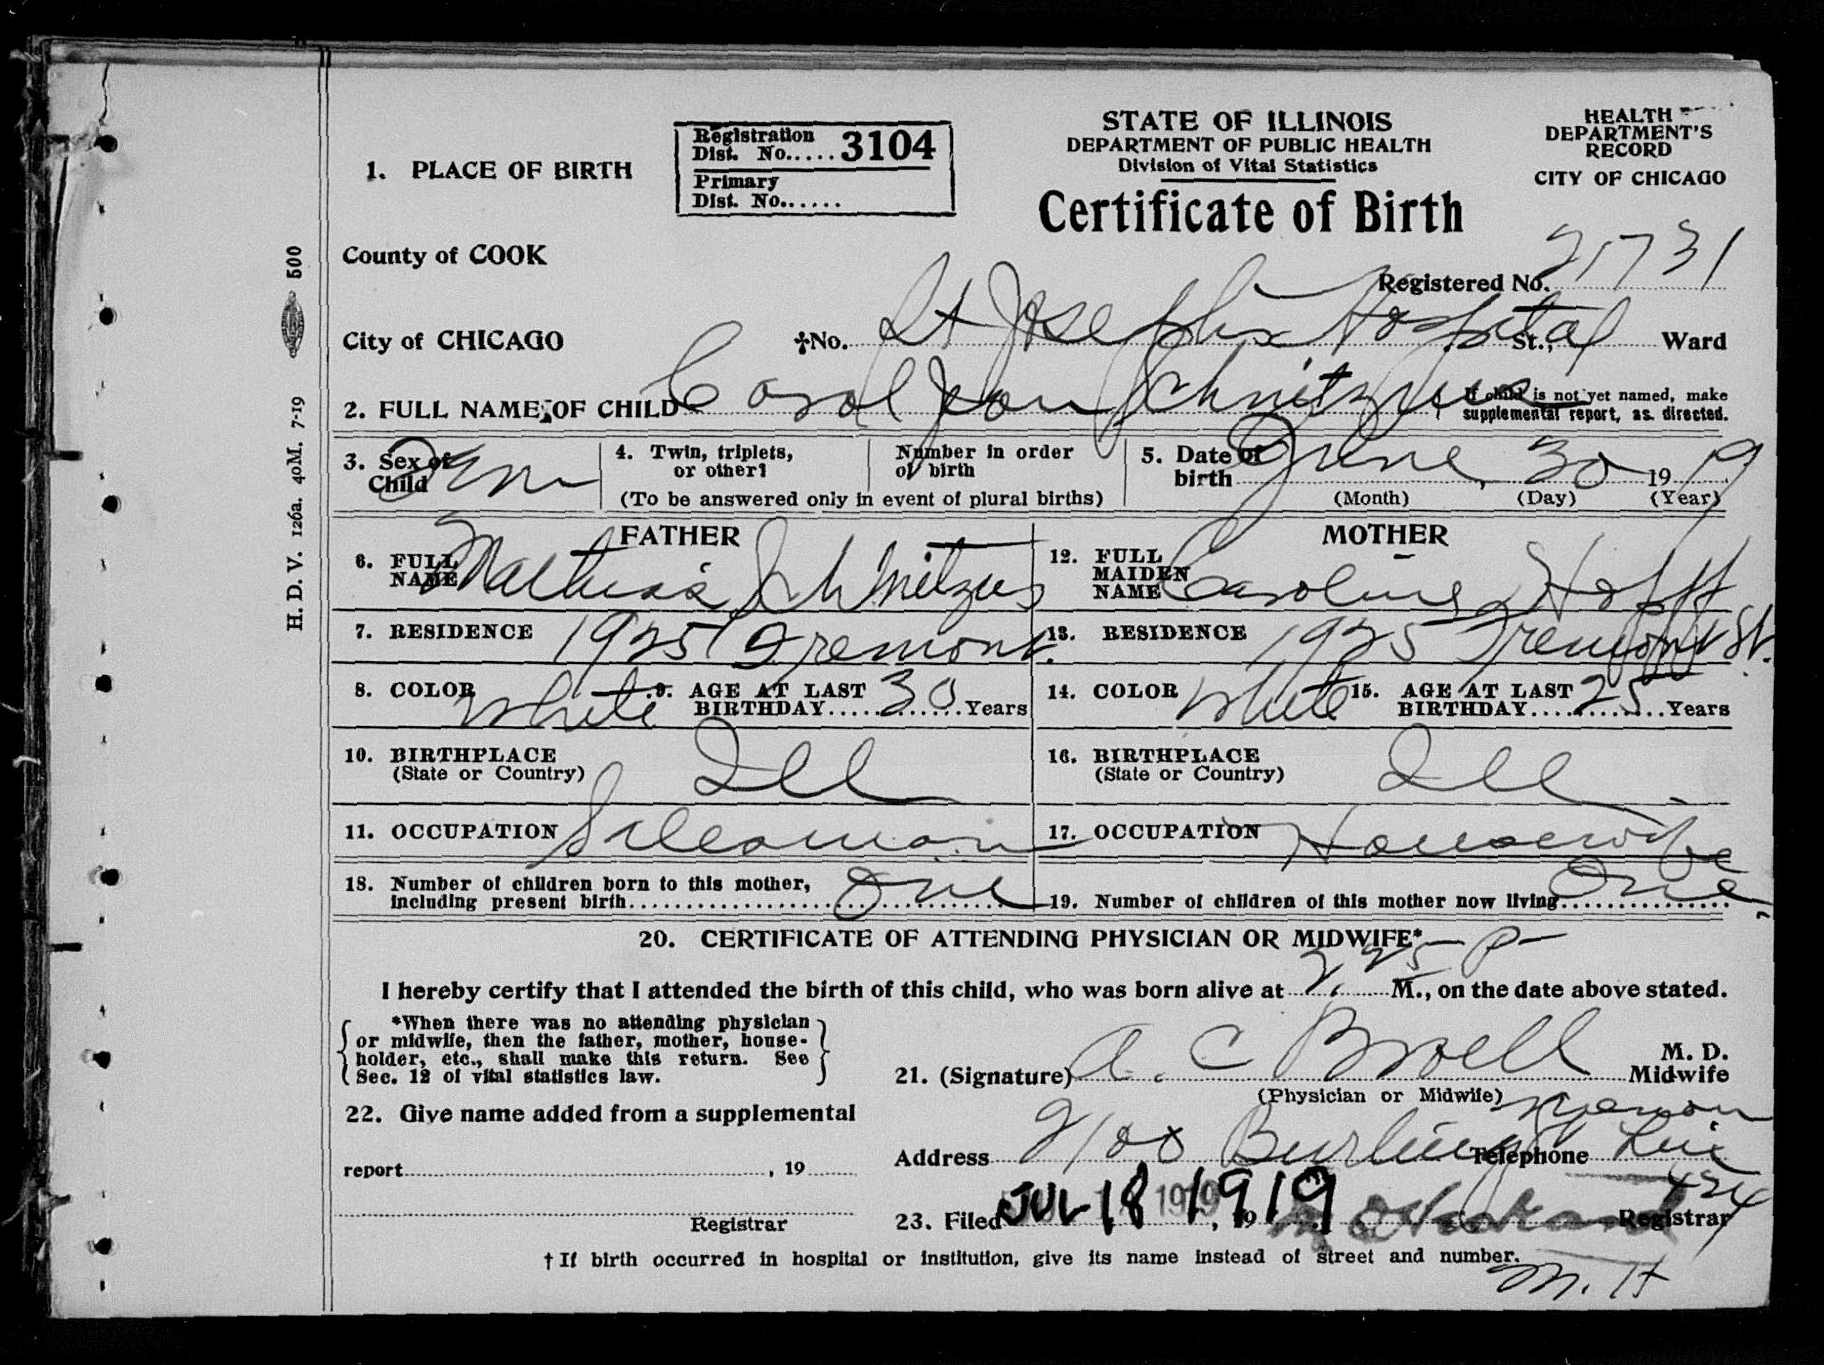 STATE OF ILLINOIS
DEPARTMENT OF PUBLIC HEALTH
Division of Vital Statistics
Certificate of Birth
HEALTH
DEPARTMENT'S
RECORD
CITY OF CHICAGO
Registration
Dist. No..... 3104
Primary
Dist. No......
1. PLACE OF BIRTH
County of COOK
Registered No. 21731
City of CHICAGO †No. St Josephs Hospital St., Ward
2. FULL NAME OF CHILD Carol Jean
If child is not yet named, make
supplemental report, as directed.
3. Sex of
Child Fem
4. Twin, triplets,
or other?
Number in order
of birth
(To be answered only in event of plural births)
5. Date of
birth June, 30 1919
(Month) (Day) (Year)
FATHER
6. FULL
NAME Mathias
7. RESIDENCE 1925 Fremont
8. COLOR White
9. AGE AT LAST
BIRTHDAY 30 Years
10. BIRTHPLACE
(State or Country) Ill
11. OCCUPATION Salesman
MOTHER
12. FULL
MAIDEN
NAME Caroline Hofft
13. RESIDENCE 1925 Fremont St.
14. COLOR White
15. AGE AT LAST
BIRTHDAY 25 Years
16. BIRTHPLACE
(State or Country) Ill
17. OCCUPATION Housewife
18. Number of children born to this mother,
including present birth One
19. Number of children of this mother now living One
20. CERTIFICATE OF ATTENDING PHYSICIAN OR MIDWIFE*
I hereby certify that I attended the birth of this child, who was born alive at 2.25 P M., on the date above stated.
*When there was no attending physician
or midwife, then the father, mother, house-
holder, etc., shall make this return. See
Sec. 12 of vital statistics law.
21. (Signature) A. C Broell M. D.
Midwife
(Physician or Midwife)
22. Give name added from a supplemental
report , 19
Registrar
Address 2100 Burling Telephone Lin
424
23. Filed JUL 18 1919, 19 Registrar
† If birth occurred in hospital or institution, give its name instead of street and number.
M. H
H. D. V. 126a. 40M. 7-19 500